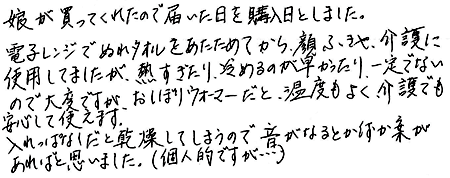 娘が買ってくれたので届いた日を購入日としました。
電子レンジでぬれタオルをあたためてから、顔ふきや、介護に
使用してましたが、熱すぎたり、冷めるのが早かったり、一定でない
ので大変ですが、おしぼりウォーマーだと、温度もよく介護でも
安心して使えます。
入れっぱなしだと乾燥してしまうので音がなるとか何か案が
あればと思いました。(個人的ですが…)